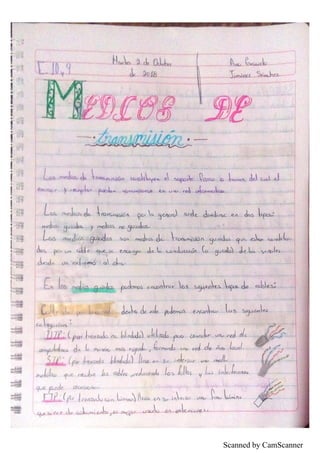 Martes 2 de Octubre
de 2018
MEDIOS DE
transmisión
Los medios de transmisión constituyen el soporte físico a traves del cual el
emisor y receptor pueden comunicarse en una red
Los medios de transmisión por lo general se dividen en dos tipos:
medios guiados y medios no guiados.
Los medios guiados son medios de transmisión que estan
por un cable que se encarga de la conducción (o guiado) de las señales
desde un extremo al otro.
En los medios guiados podemos encontrar los siguientes tipos de cables:
dentro de este podemos encontrar las siguientes
categorias:
UTP: (par trenzado no blindado) utilizado para conectar una red de
computadoras de la manera mas rapida, formando una red de área local.
STP: (par trenzado blindado) lleva en su interior una malla
metálica que recubre los cables reduciendo los fallos y las interferencias
que puede ocasionar.
FTP: (par trenzado con lamina) lleva en su interior una fina lamina
que sirve de aislamiento, es mejor usarlo en exteriores.
Scanned by CamScanner